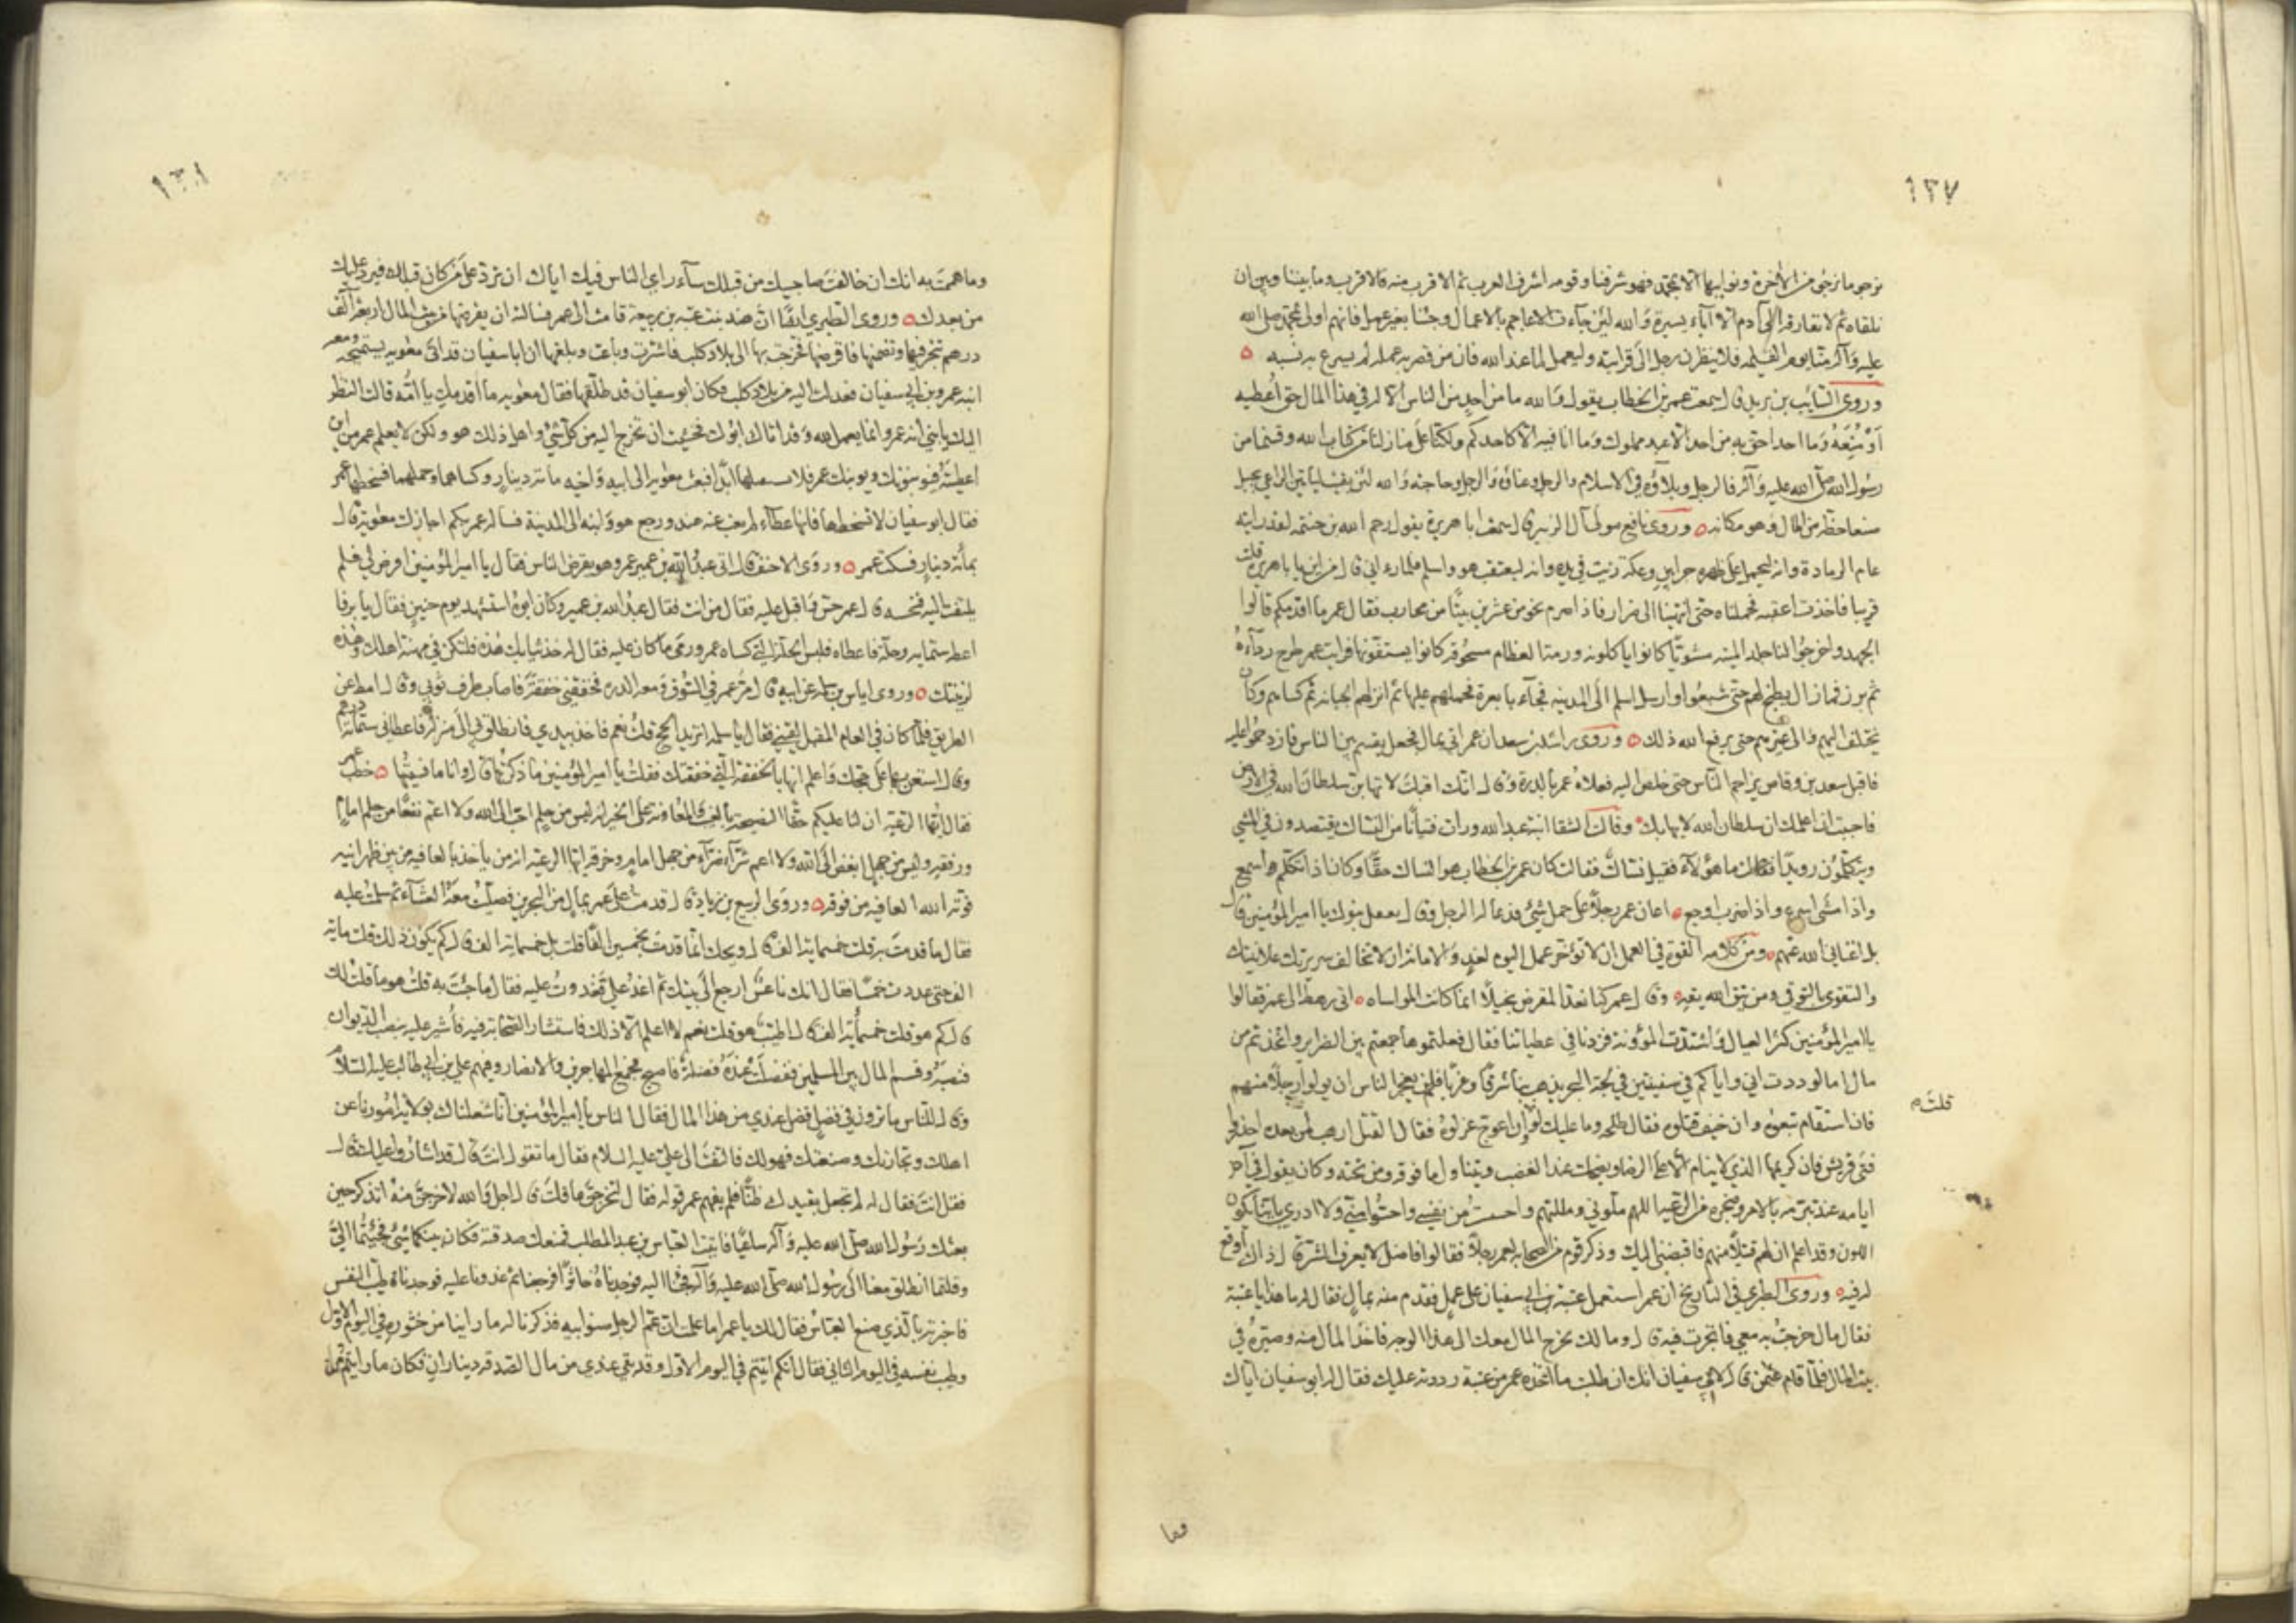 ١٣٧
نرجو ما نرجو من الآخرة وثوابها الا بمحمد فهو شرفنا وقومه اشرف العرب ثم الاقرب منه فالاقرب وما بيننا وبين ان
نلقاه ثم لا نفارقه الى آدم الا آباء يسيرة والله لئن جاءت الاعاجم بالاعمال وجئنا بغير عمل فانهم اولى بمحمد صلى الله
عليه وآله منا يوم القيمه فلا ينظرن رجل الى قرابته وليعمل لما عند الله فان من قصر به عمله لم يسرع به نسبه
وروى السائب بن يزيد قال سمعت عمر بن الخطاب يقول والله ما من احد من الناس الا له في هذا المال حق اعطيه
او مُنِعَهُ وما احد احق به من احد الا عبد مملوك وما انا فيه الا كاحدكم ولكنا على منازلنا من كتاب الله وقسمنا من
رسول الله صلى الله عليه وآله فالرجل وبلاؤه في الاسلام والرجل وغناؤه والرجل وحاجته والله لئن بقيت لياتين الراعي بجبل
صنعا حظه من المال وهو مكانه وروى نافع مولى آل الزبير قال سمعت ابا هريرة يقول رحم الله بن حنتمه لقد رايته
عام الرمادة وانه ليحمل على ظهره جرابين وعكة زيت في يده وانه ليعتقب هو واسلم فلما راني قال من اين يا با هريرة قلت
قريبا فاخذت اعقبه فحملناه حتى انتهينا الى ضرار فاذا صرم نحو من عشرين بيتًا من محارب فقال عمر ما اقدمكم قالوا
الجهد واخرجوا لنا جلد الميته مشويًّا كانوا ياكلونه ورمة العظام مسحوقه كانوا يستفونها فرايت عمر طرح رداءهُ
ثم برز فما زال يطبخ لهم حتى شبعوا وارسل اسلم الى المدينه فجاء بابعرة فحملهم عليها ثم انزلهم الجبانه ثم كساهم وكان
يختلف اليهم والى غيرهم حتى يرفع الله ذلك وروى راشد بن سعد ان عمر اتي بمال فجعل يقسم بين الناس فازدحموا عليه
فاقبل سعد بن وقاص يزاحم الناس حتى خلص اليه فعلاهُ عمر بالدرة وقال انك اقبلت لا تهاب سلطان الله في الارض
فاحببت ان اعلمك ان سلطان الله لا يهابك وقالت الشفا ابنة عبد الله ورات فتيانًا من النساك يقتصدون في المشي
ويتكلمون رويدًا فقالت ما هؤلاء فقيل نساك فقالت كان عمر بن الخطاب هو الناسك حقًّا وكان اذا تكلم اسمع
واذا مشى اسرع واذا ضرب اوجع اعان عمر رجلًا على حمل شئ فدعا له الرجل وقال نفعك بنوك يا امير المؤمنين قال
بل اغناني الله عنهم ومن كلامه القوة في العمل ان لا تؤخر عمل اليوم لغد والامانة ان لا تخالف سريرتك علانيتك
والتقوى بالتوقي ومن يتق الله يقِهِ وقال عمر كنا نعد المقرض بخيلًا انما كانت المواساه اتى رهط الى عمر فقالوا
يا امير المؤمنين كثر العيال واشتدت المؤونة فزدنا في عطياتنا فقال فعلتموها جمعتم بين الضراير واتخذتم من
مال اما لوددت اني واياكم في سفينتين في لجة البحر يذهب بنا شرقًا وغربًا فلن يعجز الناس ان يولوا رجلًا منهم
فان استقام تبعوه وان خيف قتلوه فقال طلحه وما عليك لو ان اعوج عزلوهُ فقال القتل ارهب لمن بعده احذروا
قلت م
فتى قريش فان كريمها الذي لا ينام الا على الرضا ويضحك عند الغضب ويتناول ما فوقه ومن تحته وكان يقول في آخر
ايامه عند تبرمه بالامر وضجره من الرعية اللهم ملوني ومللتهم واحسست من نفسي واحسوا مني ولا ادري باينا يكون
اللون وقد اعلم ان لهم قتيلًا منهم فاقبضني اليك وذكر قوم من الصحابه لعمر رجلًا فقالوا فاضل لا يعرف الشر قال ذاك اوقع
له فيه وروى الطبري في التاريخ ان عمر استعمل عتبة بن ابي سفيان على عمل فقدم منه بمال فقال له ما هذا يا عتبة
فقال مال خرجت به معي فاتجرت فيه قال وما لك تخرج المال معك الى هذا الوجه فاخذ المال منه وصيره في
بيت المال فلما قام عثمن قال لابي سفيان انك ان طلبت ما اخذه عمر من عتبة رددته عليك فقال له ابو سفيان اياك
وما
١٣٨
وما هممت به انك ان خالفت صاحبيك من قبلك ساء راي الناس فيك اياك ان ترد على من كان قبلك فيرد عليك
من بعدك وروى الطبري ايضًا ان هند بنت عتبه بن ربيعة قامت الى عمر فسالته ان يقرضها من بيت المال اربعة آلف
درهم تتجر فيها وتضمنها فاقرضها فخرجت بها الى بلاد كلب فاشترت وباعت وبلغها ان ابا سفيان قد اتى معويه يستميحه ومعه
ابنه عمرو بن ابي سفيان فعدلت اليه من بلاد كلب فكان ابو سفيان قد طلقها فقال معويه ما اقدمك يا امه قالت النظر
اليك يا بني انه عمر وانما يعمل لله وقد اتاك ابوك فخشيت ان تخرج اليه من كل شئ واهل ذلك هو ولكن لا يعلم عمر من اين
اعطيته فيؤنبونك ويؤنبك عمر فلا يستقبلها ابدًا فبعث معويه الى ابيه واخيه مائة دينار وكساهما وحملهما فسخطها عمر
فقال ابو سفيان لا تسخطها فانها عطاء لم يغب عنه هند ورجع هو وابنه الى المدينة فساله عمر بكم اجازك معوية قال
بمائة دينار فسكت عمر وروى الاحنف قال اتى عبد الله بن عمير عمر وهو يقرض الناس فقال يا امير المؤمنين افرض لي فلم
يلتفت اليه فنخسه قال عمر حس واقبل عليه فقال من انت فقال عبد الله بن عمير وكان ابوه استشهد يوم حنين فقال يا يرفا
اعطه ستمايه وحلة فاعطاه فلبس الحلة التي كساه عمر ورمى ما كان عليه فقال له خذ ثيابك هذه فلتكن في مهنة اهلك وهذه
لزينتك وروى اياس بن سلمه عن ابيه قال مر عمر في السوق ومعه الدره فخفقني خفقة فاصاب طرف ثوبي وقال امط عن
الطريق فلما كان في العام المقبل لقيني فقال يا سلمه اتريد الحج قلت نعم فاخذ بيدي فانطلق بي الى منزله فاعطاني ستمائة درهم
وقال استعن بها على حجك واعلم انها بالخفقة التي خفقتك فقلت يا امير المؤمنين ما ذكرتها قال وانا ما نسيتها خطب عمر
فقال ايها الرعية ان لنا عليكم حقًّا النصيحة بالغيب والمعاونه على الخير انه ليس من حلم احب الى الله ولا اعم نفعًا من حلم امام
ورفقه وليس من جهل ابغض الى الله ولا اعم شرًّا من جهل امام وخرقه ايها الرعية انه من ياخذ بالعافيه من بين ظهرانيه
يؤته الله العافيه من فوقه وروى الربيع بن زياد قال قدمت على عمر بمال من البحرين فصليت معه العشاء ثم سلمت عليه
فقال ما قدمت به قلت خمسمايه الف قال ويحك انما قدمت بخمسين الفًا قلت بل خمسمايه الف قال كم يكون ذلك قلت مايه
الف حتى عددت خمسًا فقال انك ناعس ارجع الى بيتك ثم اغد علي فغدوت عليه فقال ما جئت به قلت هو ما قلت لك
قال كم هو قلت خمسمائه الف قال اطيب هو قلت نعم لا اعلم الا ذلك فاستشار الصحابة فيه فاشير عليه بنصب الديوان
فنصبه وقسم المال بين المسلمين ففضلت عنده فضلة فاصبح فجمع المهاجرين والانصار وفيهم علي بن ابي طالب عليه السلام
وقال للناس ما ترون في فضل فضل عندي من هذا المال فقال الناس يا امير المؤمنين انا شغلناك بولاية امورنا عن
اهلك وتجارتك وصنعتك فهو لك فالتفت الى علي عليه السلام فقال ما تقول انت قال قد اشاروا عليك قال
فقل انت فقال له لم تجعل يقينك ظنًّا فلم يفهم عمر قوله فقال لتخرجن مما قلت قال اجل والله لاخرجن منهُ اتذكر حين
بعثك رسول الله صلى الله عليه وآله ساعيًا فاتيت العباس بن عبد المطلب فمنعك صدقته فكان بينكما شئ فجئتما الي
وقلتما انطلق معنا الى رسول الله صلى الله عليه وآله فجئنا اليه فوجدناهُ خاثرًا فرجعنا ثم غدونا عليه فوجدناه طيب النفس
فاخبرته بالذي صنع العباس فقال لك يا عمر اما علمت ان عم الرجل صنو ابيه فذكرنا له ما راينا من خثوره في اليوم الاول
وطيب نفسه في اليوم الثاني فقال انكم اتيتم في اليوم الاول وقد بقي عندي من مال الصدقه ديناران فكان ما رايتم